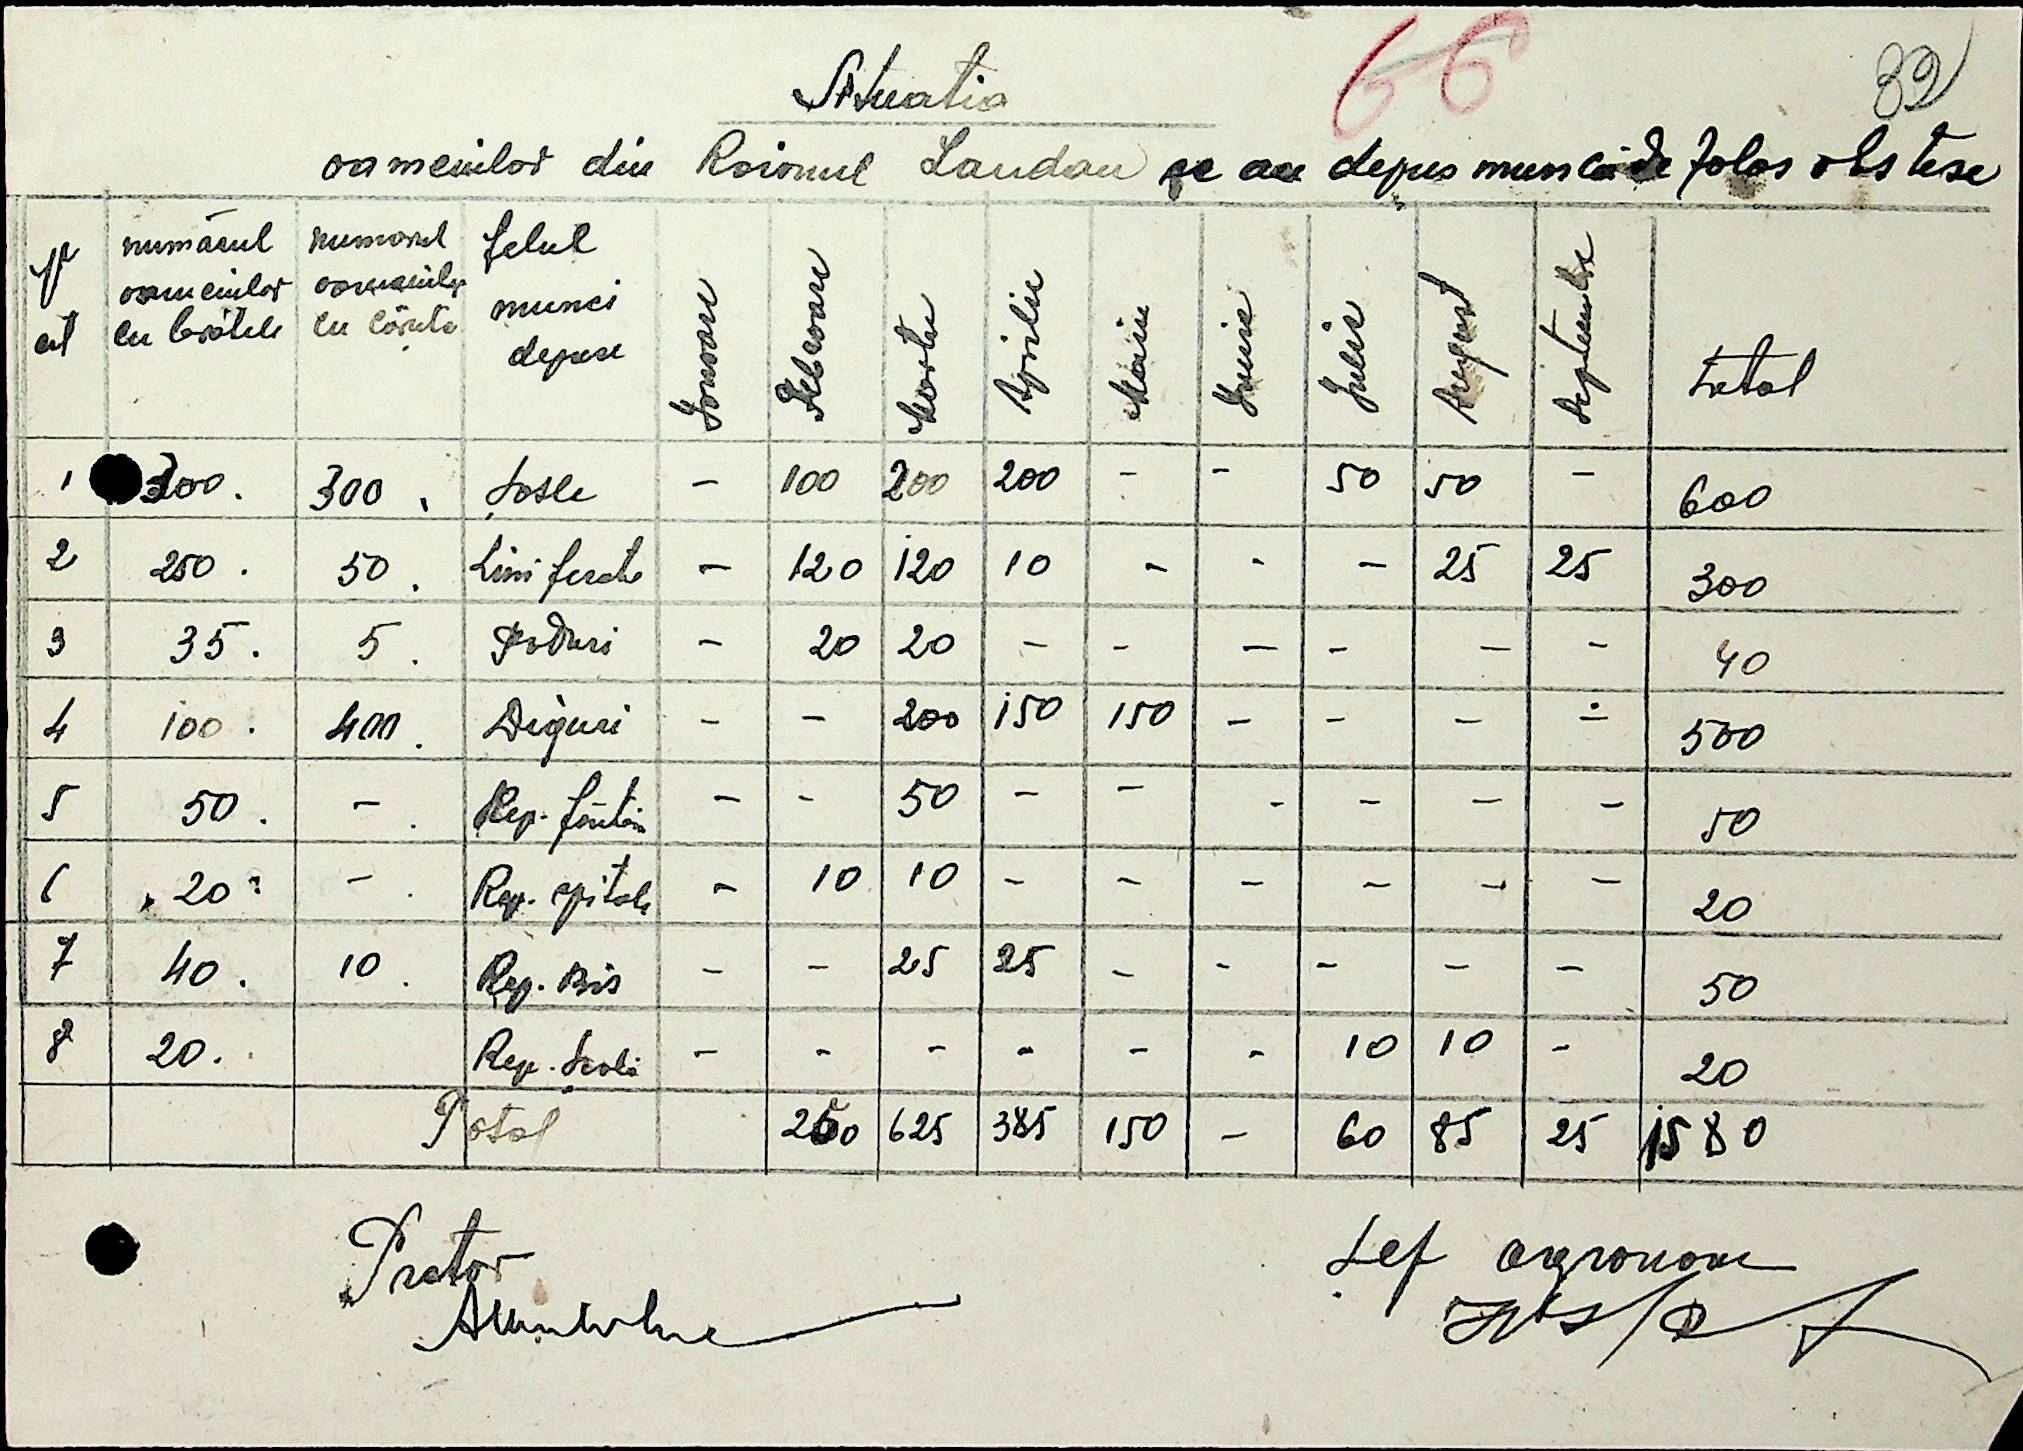 66
82
Situatia
oamenilor din Raionul Landau ce au depus munca de folos obstesc
№ numărul numarul felul
crt oamenilor oamenilor munci
cu bratele cu căruta depuse Ianuarie Februarie Martie Aprilie Maiu Iunie Iulie August Septembrie total
1 300. 300. Șosele - 100 200 200 - - 50 50 - 600
2 250. 50. Linii ferate - 120 120 10 - - - 25 25 300
3 35. 5. Poduri - 20 20 - - - - - - 40
4 100. 400. Diguri - - 200 150 150 - - - - 500
5 50. - . Rep. fântâni - - 50 - - - - - - 50
6 20. - . Rep. spitale - 10 10 - - - - - - 20
7 40. 10. Rep. Bis - - 25 25 - - - - - 50
8 20. Rep. Școli - - - - - - 10 10 - 20
Total 250 625 385 150 - 60 85 25 1580
Pretor Șef agronom